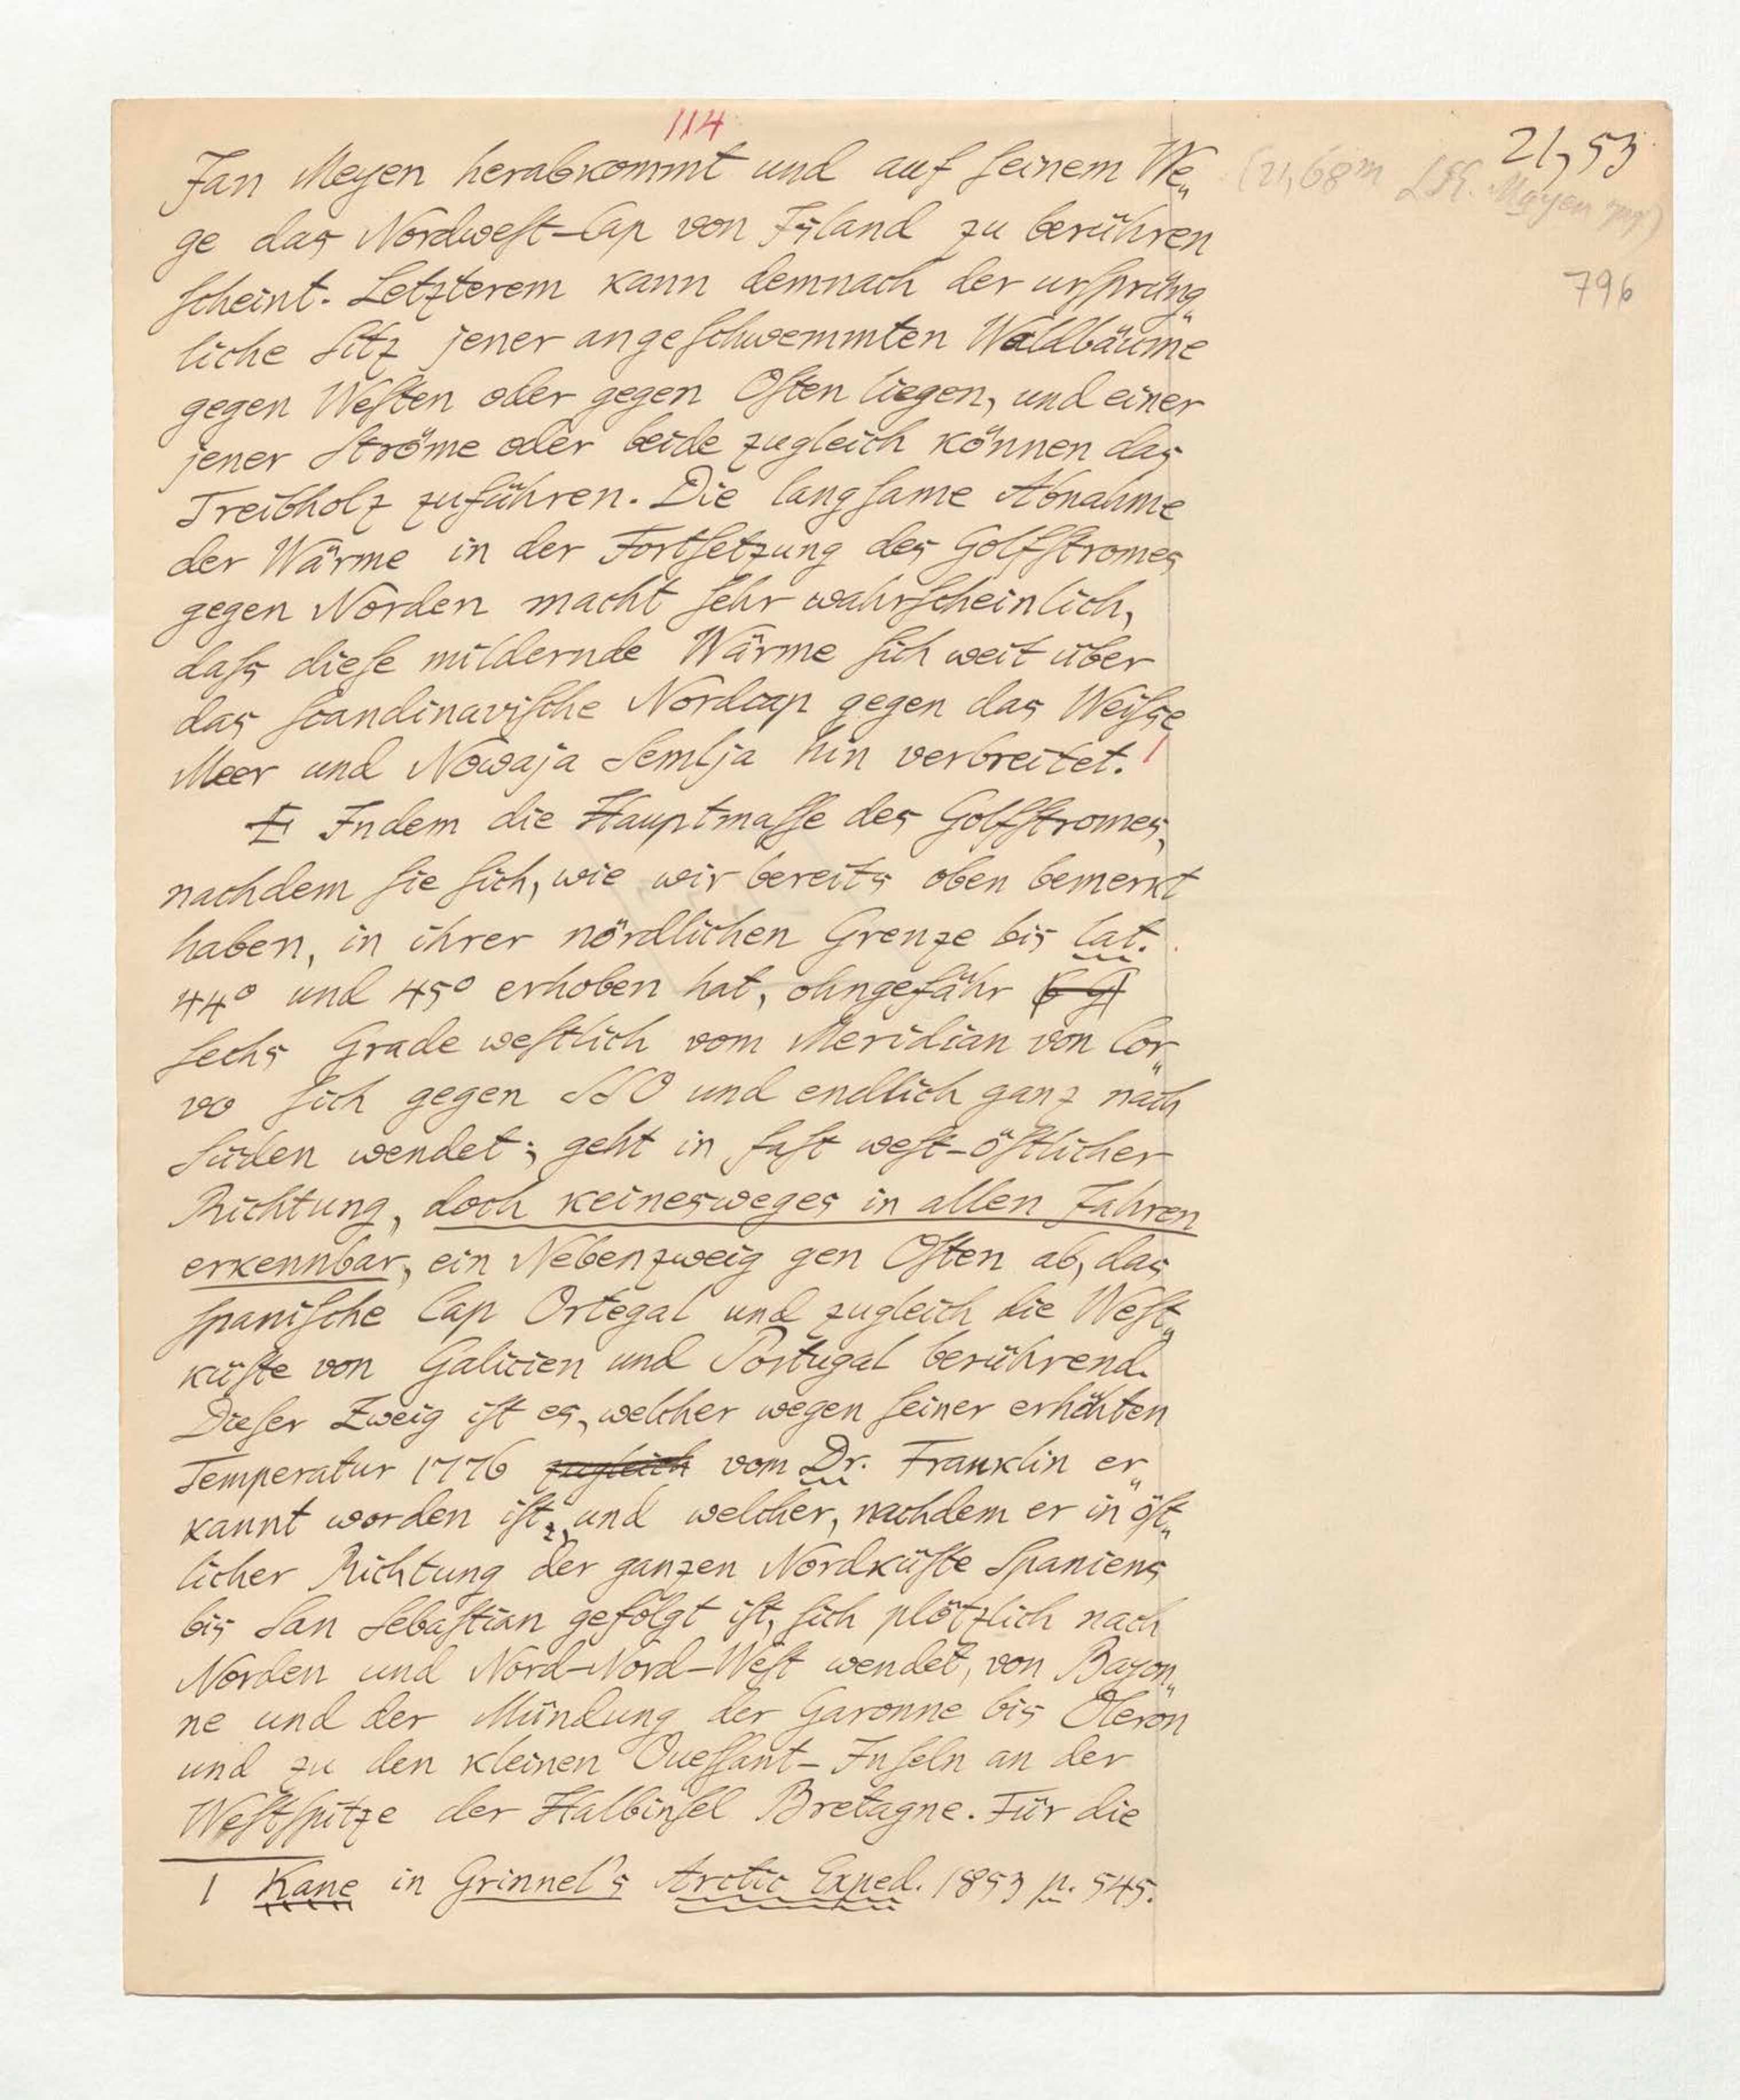 114
21,53
Jan Meyen herabkommt und auf ſeinem We„
(21,68m
Mayen
ge das Nordweſt-Cap von Island zu berühren
796
ſcheint. Letzterem kann demnach der urſprüng„
liche Sitz jener angeſchwemmten Waldbäume
gegen Weſten oder gegen Oſten liegen, und einer
jener Ströme oder beide zugleich können das
Treibholz zuführen. Die langſame Abnahme
der Wärme in der Fortſetzung des Golfſtromes
gegen Norden macht ſehr wahrſcheinlich,
daſs dieſe mildernde Wärme ſich weit über
das ſcandinaviſche Nordcap gegen das Weiſse
Meer und Nowaja Semlja hin verbreitet. 1
Indem die Hauptmaſſe des Golfſtromes,
nachdem ſie ſich, wie wir bereits oben bemerkt
haben, in ihrer nördlichen Grenze bis lat.
44° und 45° erhoben hat, ohngefähr (6 g)
ſechs Grade weſtlich vom Meridian von Cor„
vo ſich gegen SSO und endlich ganz nach
Süden wendet; geht in faſt weſt-öſtlicher
Richtung, doch keinesweges in allen Jahren
erkennbar, ein Nebenzweig gen Oſten ab, das
ſpaniſche Cap Ortegal und zugleich die Weſt„
küſte von Galicien und Portugal berührend.
Dieſer Zweig iſt es, welcher wegen ſeiner erhöhten
Temperatur 1776 zugleich vom Dr. Franklin er„
kannt worden iſt; und welcher, nachdem er in öſt„
licher Richtung der ganzen Nordküſte Spaniens
bis San Sebaſtian gefolgt iſt, ſich plötzlich nach
Norden und Nord-Nord-Weſt wendet, von Bayon„
ne und der Mündung der Garonne bis Oleron
und zu den kleinen Oueſſant-Inſeln an der
Weſtſpitze der Halbinſel Bretagne. Für die
1 Kane in Grinnel's Arctic Exped. 1853 p. 545.